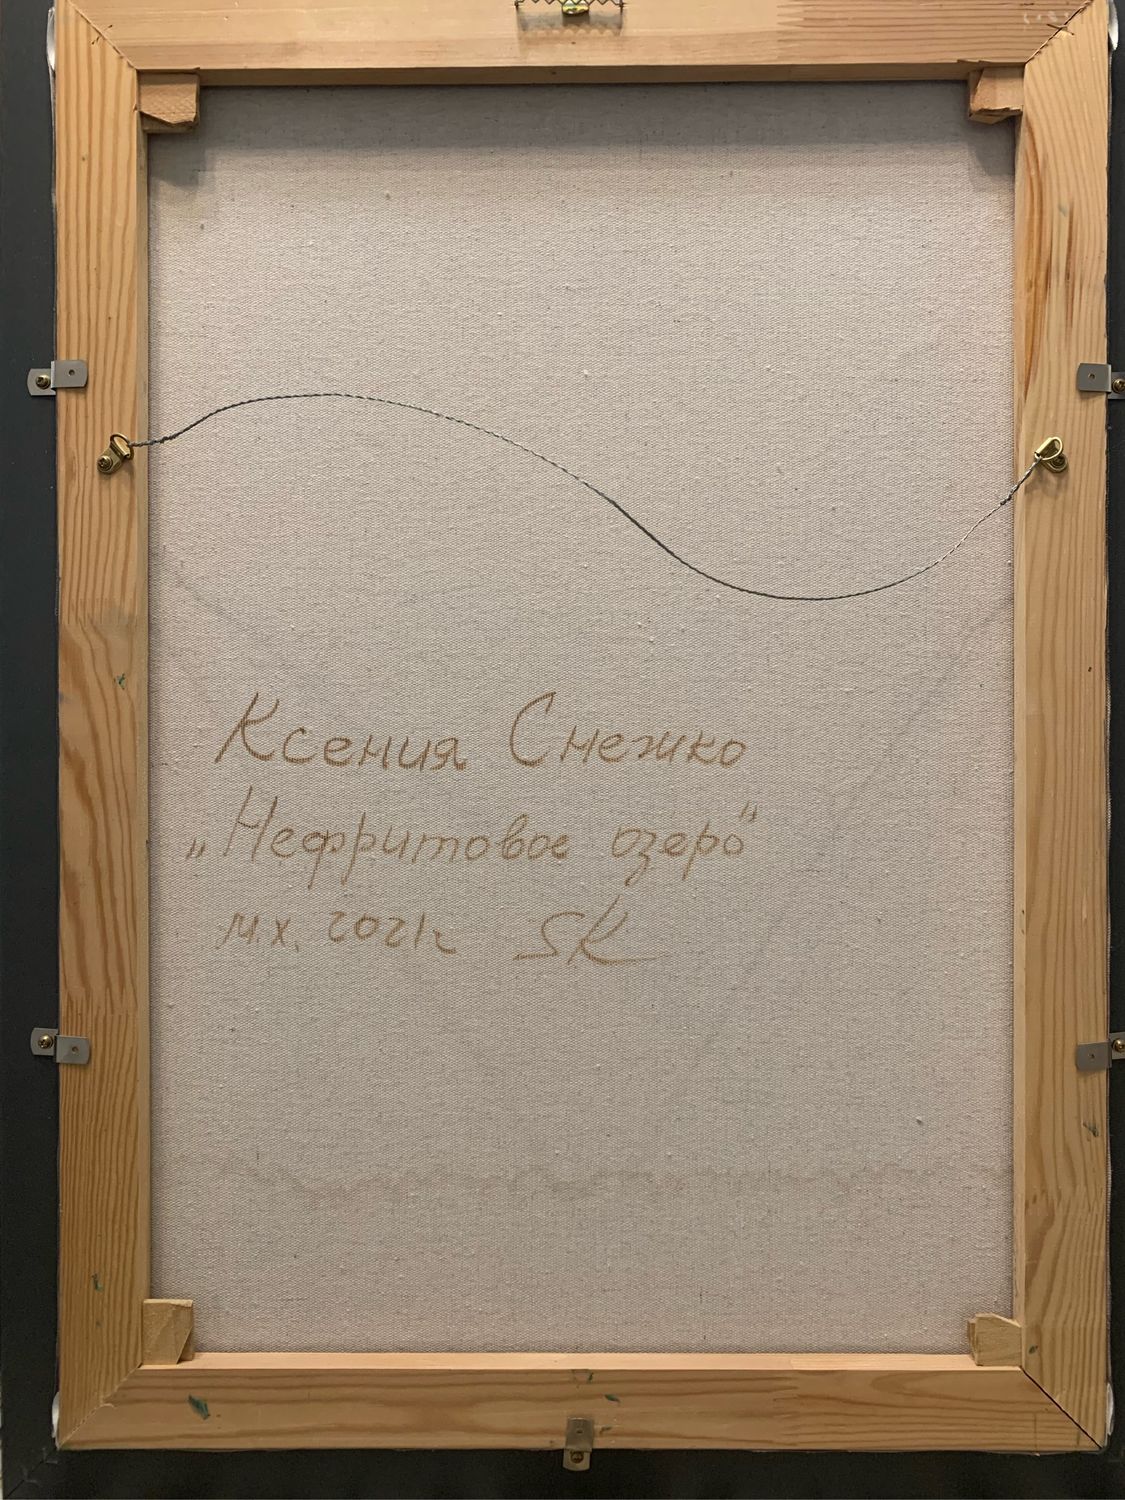 Ксения Снежко
„Нефритовое озеро"
м.х. 2021г SK